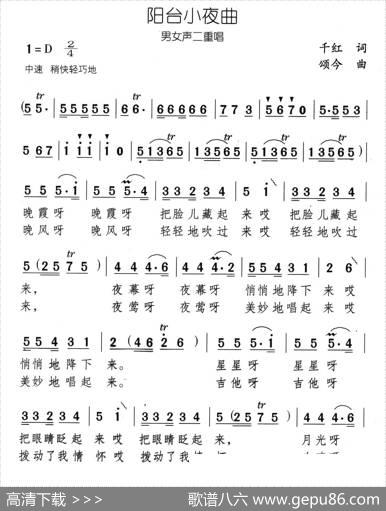 阳台小夜曲
男女声二重唱
1=D 2/4
千红 词
中速 稍快轻巧地
颂今 曲
(55· 55555 66· 66666 773 5670 5·555
567 i i i i0 51365 51365 51365 1365)
55 5·i 55 5·4 33234 5i 33234
晚霞呀 晚霞呀 把脸儿藏起 来哎 把脸儿藏起
晚风呀 晚风呀 轻轻地吹过 来哎 轻轻地吹过
5(25 75) 44 4·6 44 4·2 55431 26
来, 夜幕呀 夜幕呀 悄悄地降下 来哎
来, 夜莺呀 夜莺呀 美妙地唱起 来哎
55431 2(46 26) 55 5·i 55 5·4
悄悄地降下 来。 星星呀 星星呀
美妙地唱起 来。 吉他呀 吉他呀
33234 5i 33234 5(25 75) 44 4·6
把眼睛眨起 来哎 把眼睛眨起 来, 月光呀
拨动了我情 怀哎 拨动了我情
高清下载 >>>
歌谱八六 www.gepu86.com